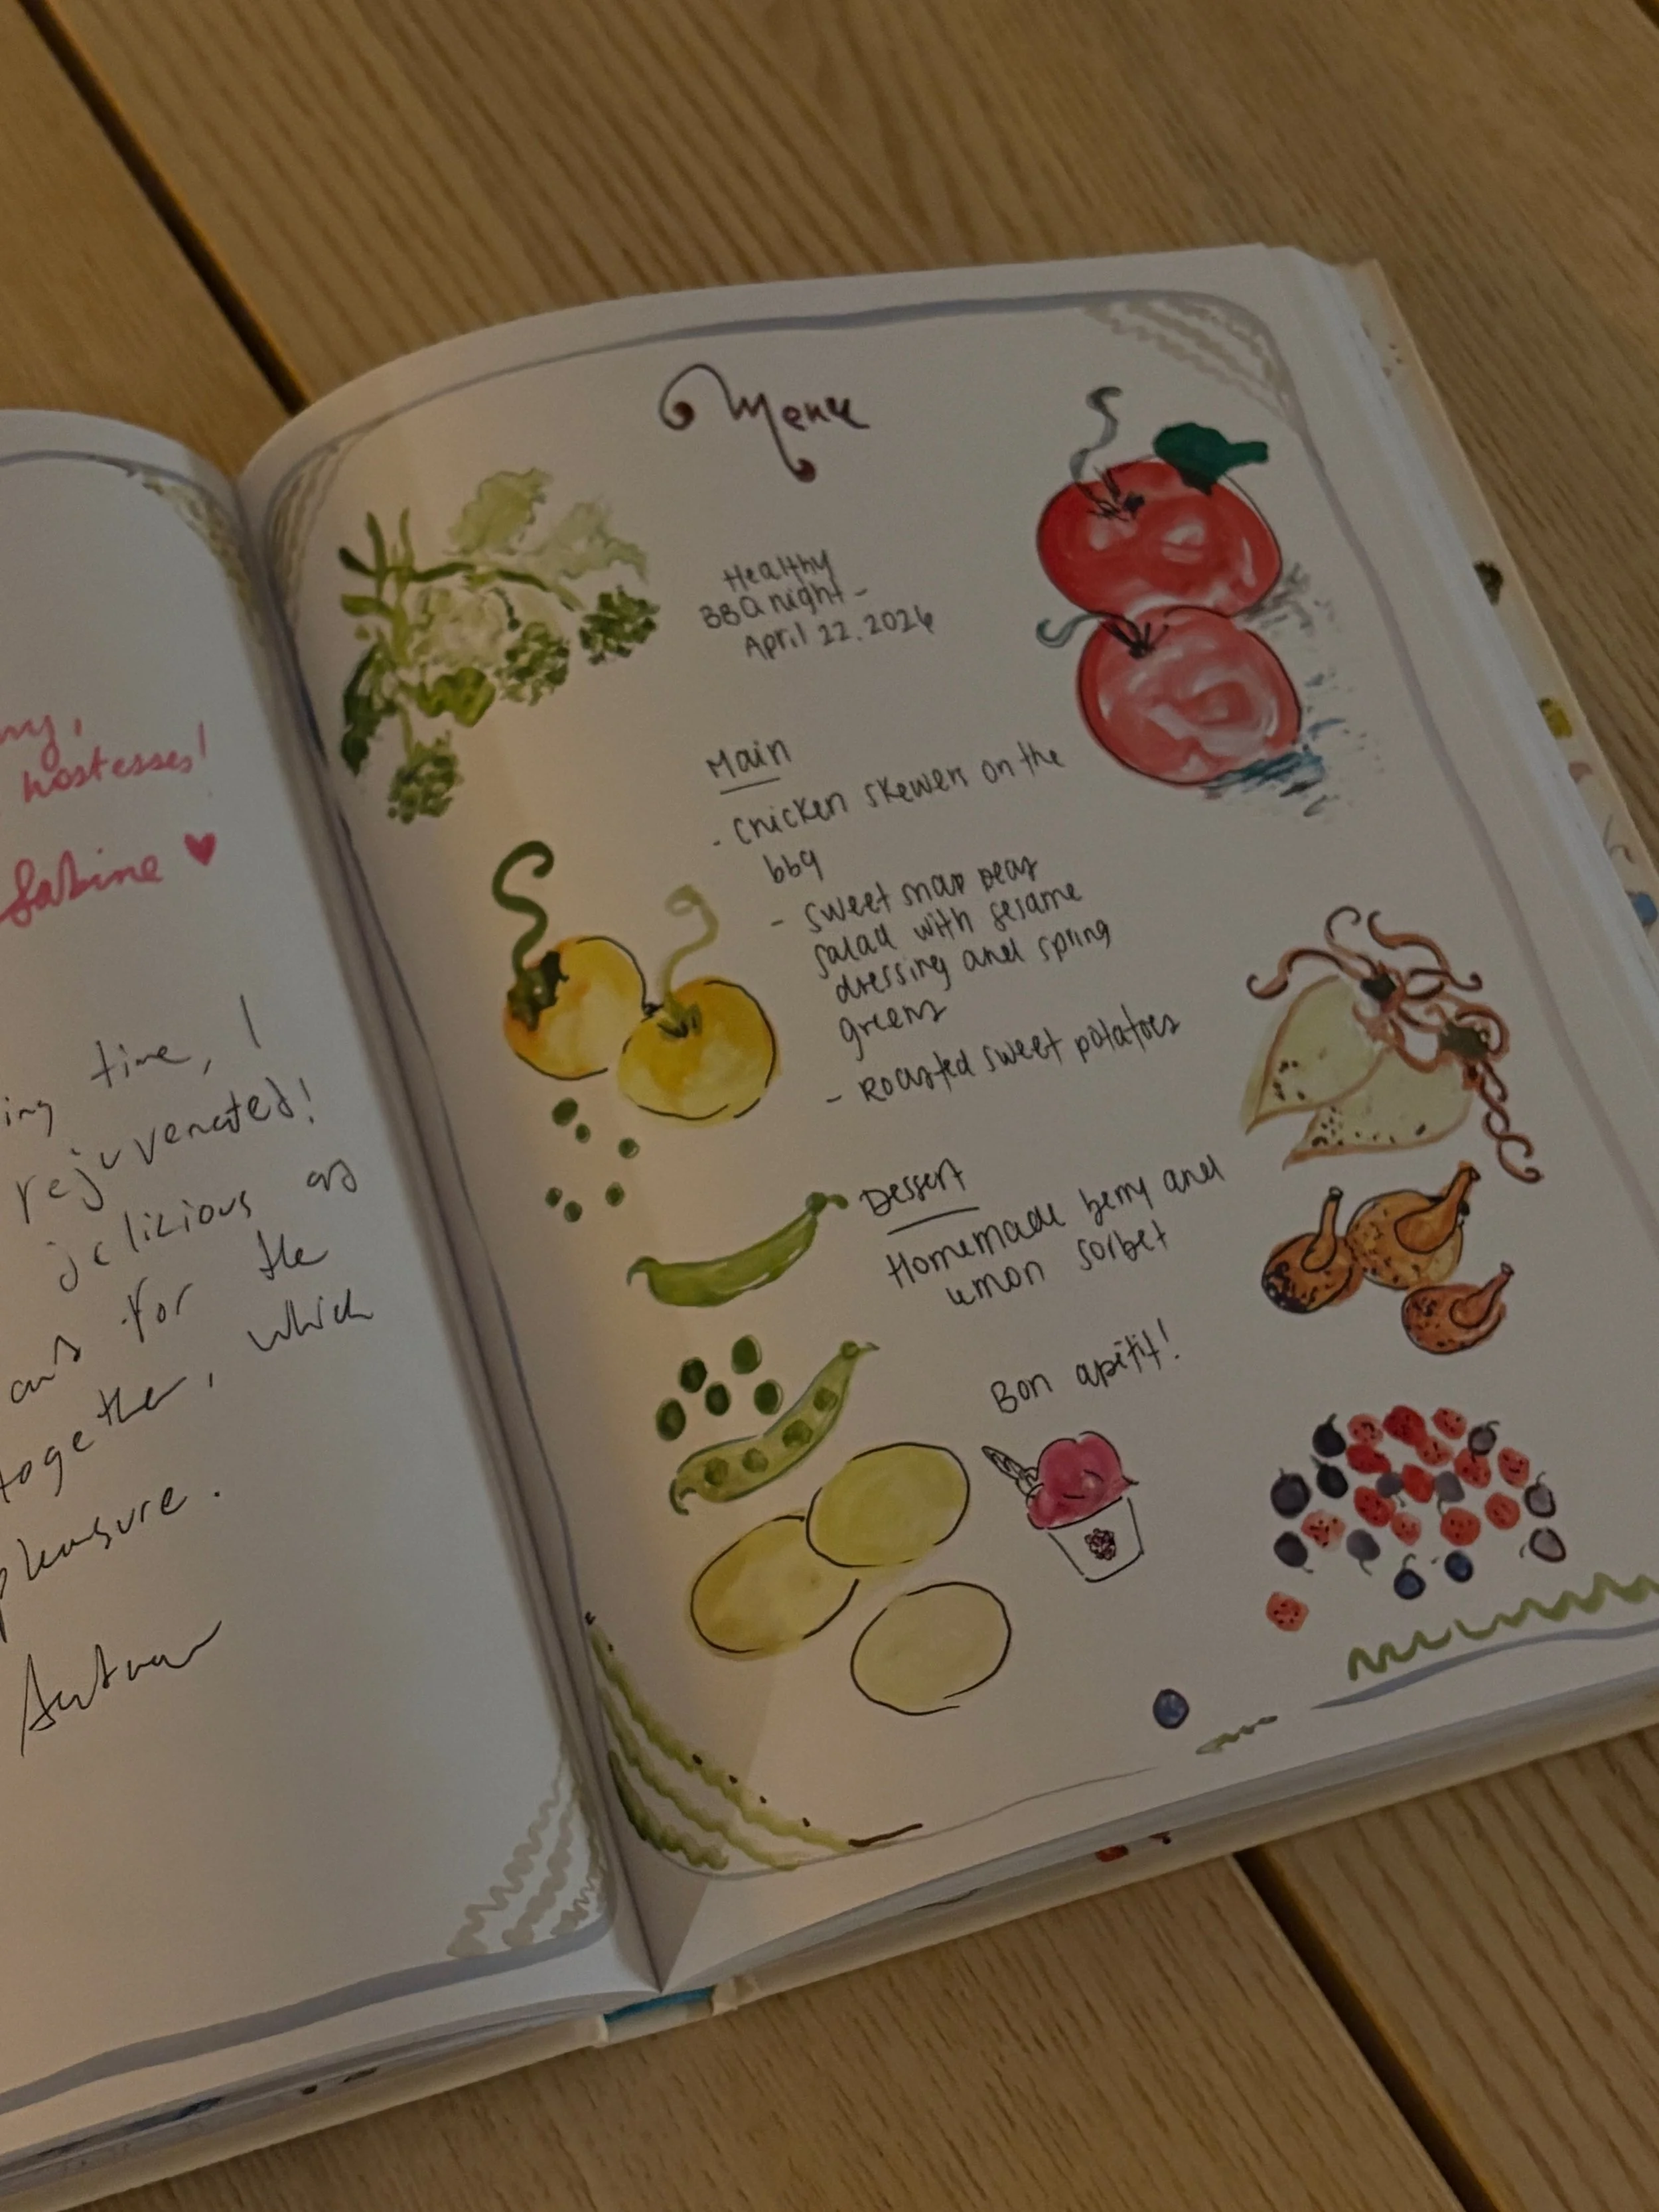 my,
hostesses!
Sabine ♥
ing time, I
rejuvenated!
delicious as
ans for the
together, which
pleasure.
Autumn
Menu
Healthy
BBQ night -
April 22. 2024
Main
- Chicken skewers on the
bbq
- sweet snap peas
salad with sesame
dressing and spring
greens
- Roasted sweet potatoes
Dessert
Homemade berry and
lemon sorbet
Bon apétit!